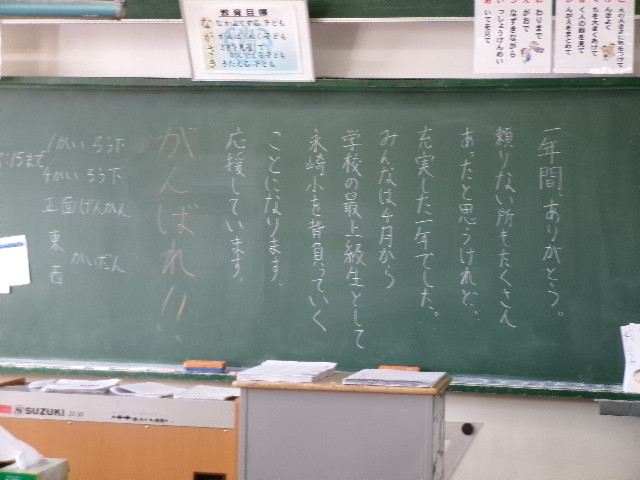 一年間、ありがとう。
頼りない所もたくさん
あったと思うけれど、
充実した一年でした。
みんなは4月から
学校の最上級生として
永崎小を背負っていく
ことになります。
応援しています。
がんばれ!!
1かい ろう下
4かい ろう下
正面げんかん
東
西
かいだん
:15まで
教育目標
ながさき
SUZUKI